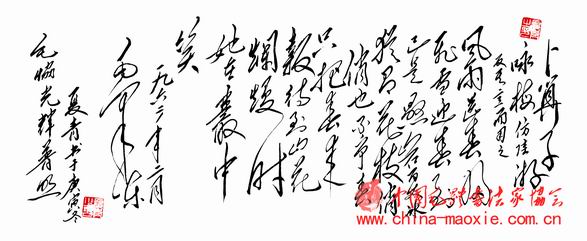 卜算子
咏梅 仿陆游
反其意而用之
风雨送春归
飞雪迎春到
已是悬崖百丈冰
犹有花枝俏
俏也不争春
只把春来
報待到山花
爛熳时
她在叢中
笑
一九六二年二月
毛泽东
夏青书于庚寅冬
光辉普照
中国毛体书法家协会
www.china-maoxie.com.cn